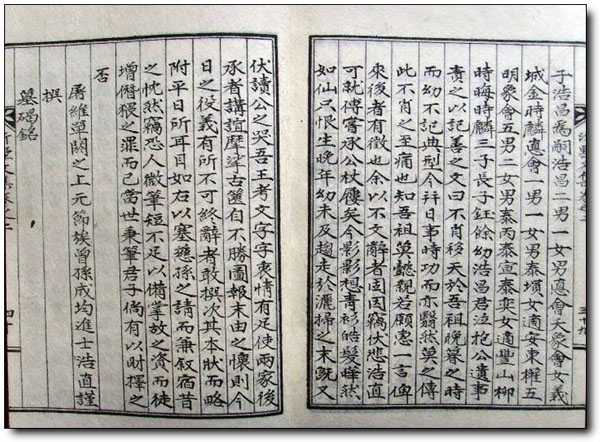 子浩昌爲嗣浩昌二男一女男悳會天象會女義
城金時麟悳會一男一女男泰塤女適安東權五
明象會五男二女男泰丙泰宣泰奕女適豐山柳
時晦時麟三子長子鈺餘幼浩昌君泣抱公遺事
責之以記善之文曰不肖移天於吾祖晚景之時
而幼不記典型今幷日事時功而亦翳然莫之傳
此不肖之至痛也知吾祖莫懿親若願惠一言俾
來後者有徵也余以不文辭者固因竊伏悲浩直
可就傅嘗承公杖屨矣今影影想靑衫皓髮暭然
如仙只恨生晚年幼未及趨走於灑掃之末旣又
伏讀公之哭吾王考文字字衷情有足使兩家後
承者講誼摩挲古篋自不勝圖報末由之懷則今
日之役義有所不可終辭者敢撰次其本狀而略
附平日所耳目如右以塞慈孫之請而兼叙宿昔
之忱然竊恐人微筆短不足以備掌故之資而徒
增僭猥之罪而已當世秉筆君子倘有以財擇之
否
屠維單閼之上元節族曾孫成均進士浩直謹
撰
墓碣銘